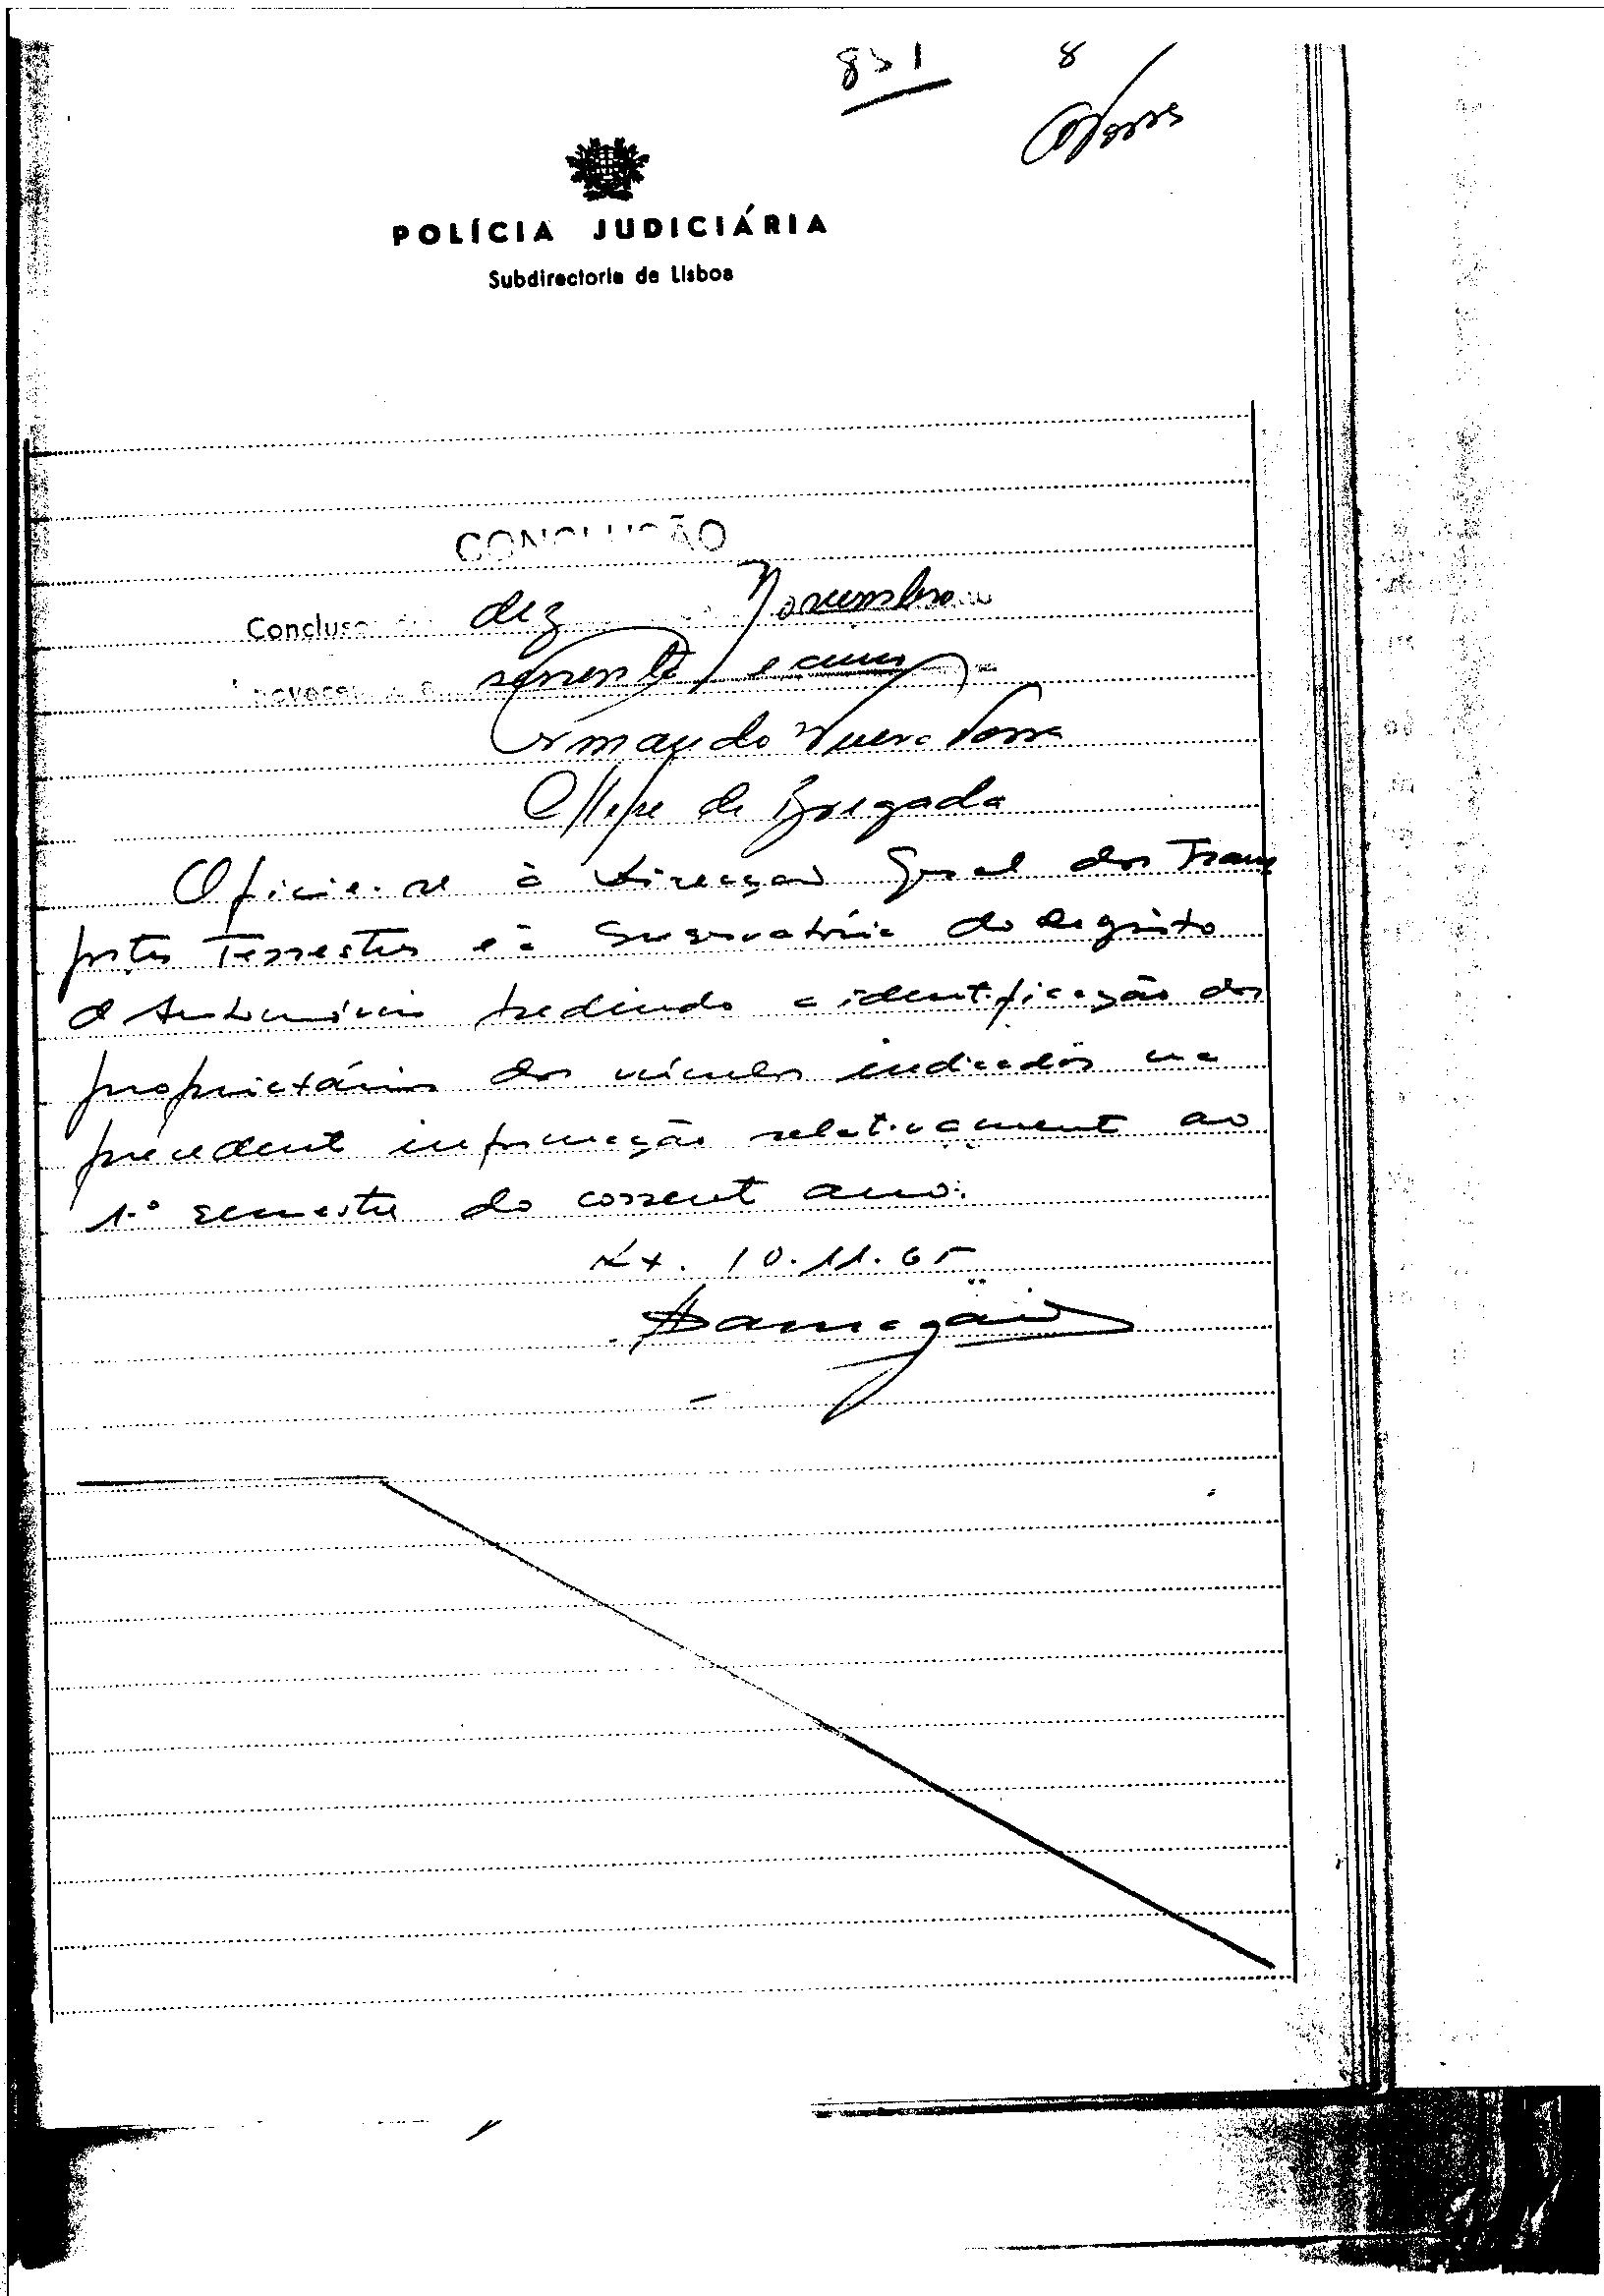 8
POLÍCIA JUDICIÁRIA
Subdirectoria de Lisboa
CONCLUSÃO
Concluso dez Novembro
novecen e sessenta e cinco
Armando
Chefe de Brigada
Oficie-se à Direcção Geral dos Trans
portes Terrestres e à Conservatória do Registo
de Automóveis pedindo a identificação dos
proprietários dos veículos indicados na
precedente informação relativamente ao
1.º semestre do corrente ano.
Lx. 10.11.65